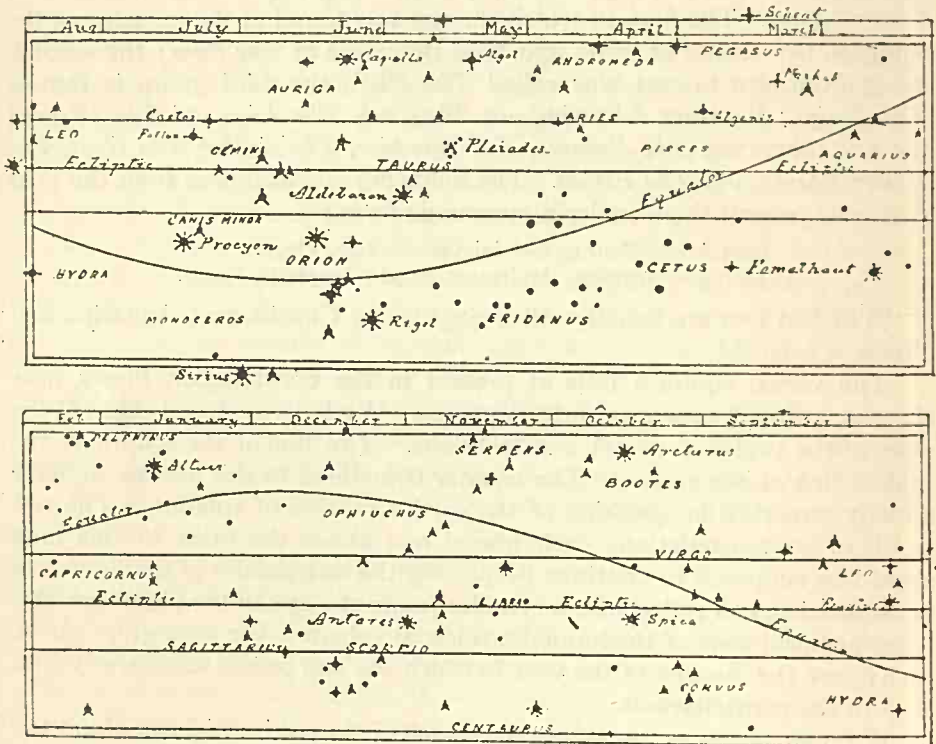 Scheat
Aug July June May April March
PEGASUS
Capella Algol ANDROMEDA
Markab
AURIGA
Castor ARIES Algenib
LEO Pollux
GEMINI Pleiades PISCES AQUARIUS
Ecliptic TAURUS Ecliptic
Aldebaran Equator
CANIS MINOR
Procyon
ORION
HYDRA CETUS Fomalhaut
MONOCEROS Rigel ERIDANUS
Sirius
Feb January December November October September
DELPHINUS SERPENS Arcturus
Altair BOOTES
Equator OPHIUCHUS
VIRGO
CAPRICORNUS LEO
Ecliptic LIBRA Ecliptic Regulus
Antares Spica Equator
SAGITTARIUS SCORPIO
CORVUS
HYDRA
CENTAURUS